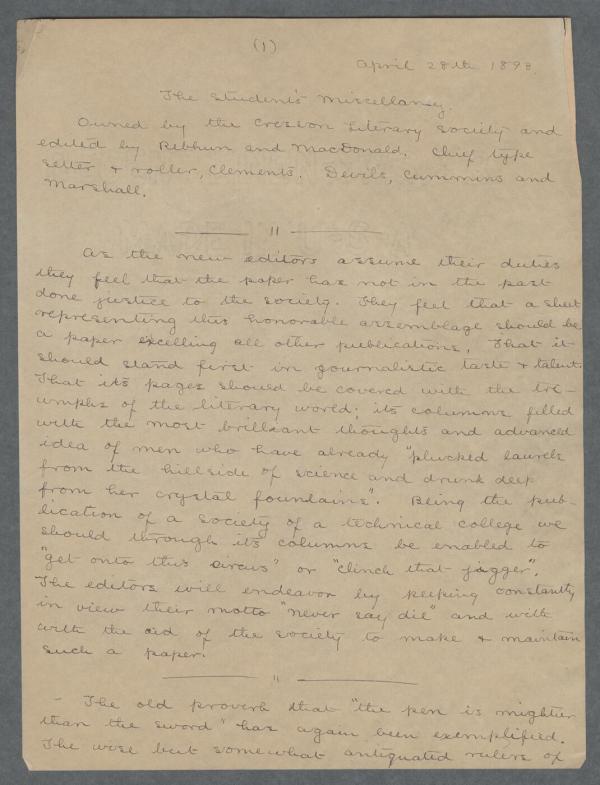 (1)
April 28th 1893.
The Student's Miscellany.
Owned by the Crescon Literary Society and
edited by Rebhun and MacDonald. Chief type
setter & roller, Clements. Devils, Cummins and
Marshall.
"
As the new editors assume their duties
they feel that the paper has not in the past
done justice to the society. They feel that a sheet
representing this honorable assemblage should be
a paper excelling all other publications, That it
should stand first in journalistic taste & talent.
That its pages should be covered with the tri-
umphs of the literary world; its columns filled
with the most brilliant thoughts and advanced
idea of men who have already "plucked laurels
from the hillside of science and drunk deep
from her crystal fountains". Being the pub-
lication of a society of a technical college we
should through its columns be enabled to
"get onto this circus" or "clinch that jigger".
The editors will endeavor by keeping constantly
in view their motto "never say die" and with
with the aid of the society to make & maintain
such a paper.
"
- The old proverb that "the pen is mightier
than the sword" has again been exemplified.
The wise but somewhat antiquated rulers of